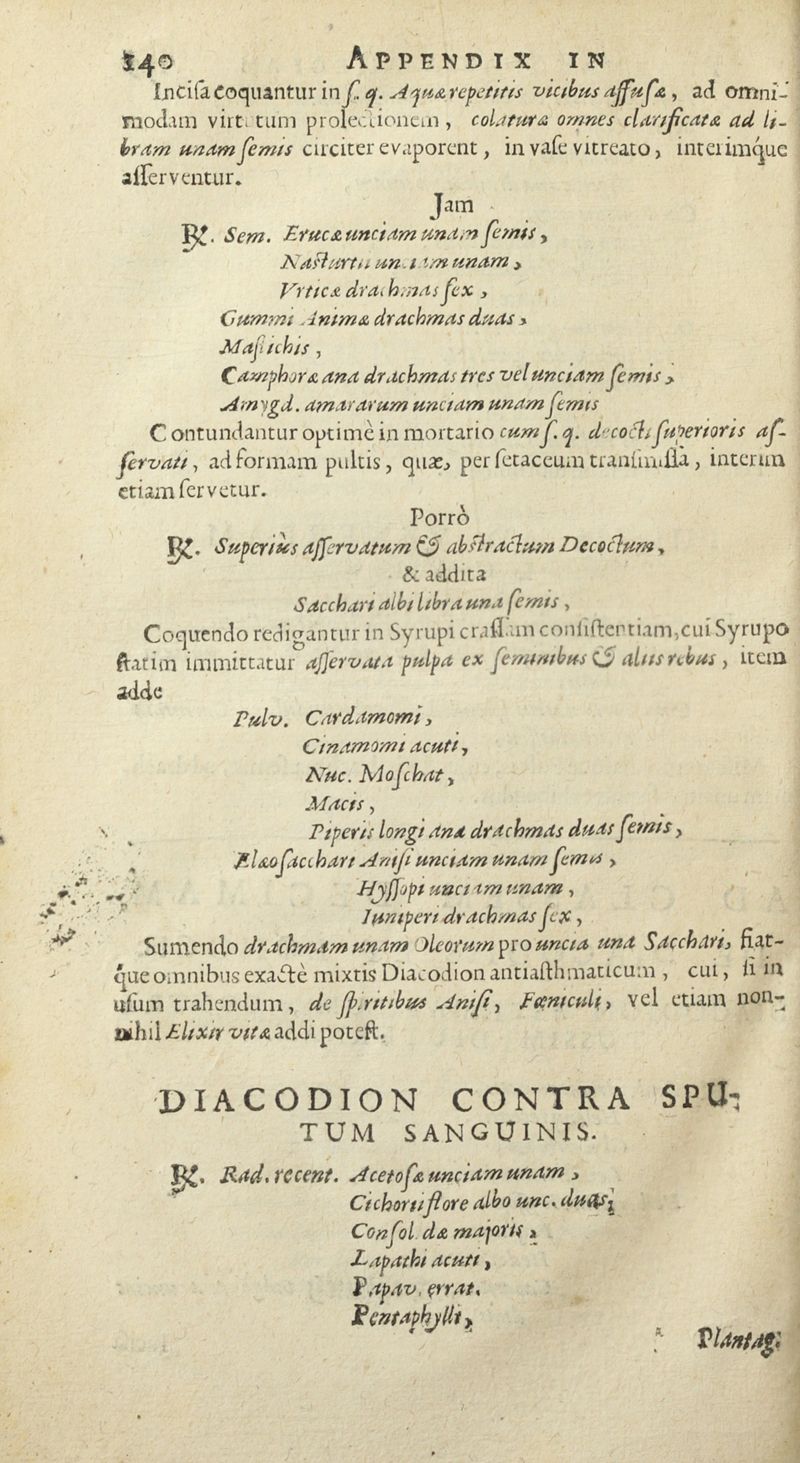 140 APPENDIX IN
Inciſa coquantur in ſ. q. Aquæ repetitis vicibus affuſæ, ad omni-
modam virtutum prolectionem, colaturæ omnes clarificatæ ad li-
bram unam ſemis circiter evaporent, in vaſe vitreato, interimque
aſſerventur.
Jam
℞. Sem. Erucæ unciam unam ſemis,
Naſturtii unciam unam,
Vrticæ drachmas ſex,
Gummi Animæ drachmas duas,
Maſtichis,
Camphoræ ana drachmas tres vel unciam ſemis,
Amygd. amararum unciam unam ſemis
Contundantur optimè in mortario cum ſ. q. decocti ſuperioris aſ-
ſervati, ad formam pultis, quæ, per ſetaceum tranſmiſſa, interim
etiam ſervetur.
Porrò
℞. Superiùs aſſervatum & abſtractum Decoctum,
& addita
Sacchari albi libra una ſemis,
Coquendo redigantur in Syrupi craſſam conſiſtentiam, cui Syrupo
ſtatim immittatur aſſervata pulpa ex ſeminibus & aliis rebus, item
adde
Pulv. Cardamomi,
Cinamomi acuti,
Nuc. Moſchat,
Macis,
Piperis longi ana drachmas duas ſemis,
Elæoſacchari Aniſi unciam unam ſemis,
Hyſſopi unciam unam,
Iuniperi drachmas ſex,
Sumendo drachmam unam Oleorum pro uncia una Sacchari, fiat-
que omnibus exactè mixtis Diacodion antiaſthmaticum, cui, ſi in
uſum trahendum, de ſpiritibus Aniſi, Fœniculi, vel etiam non-
nihil Elixir vitæ addi poteſt.
DIACODION CONTRA SPU-
TUM SANGUINIS.
℞. Rad. recent. Acetoſæ unciam unam,
Cichorii flore albo unc. duas,
Conſolidæ majoris,
Lapathi acuti,
Papav. errat.
Pentaphylli,
Plantag.